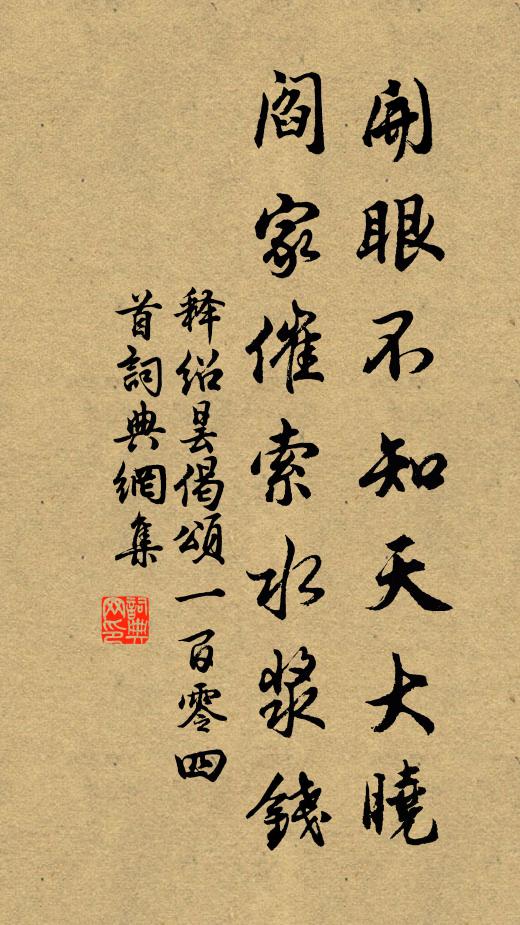 開眼不知天大曉
閻家催索水漿錢
释绍昙偈頌一百零四
首詞典網集
詞典
网印